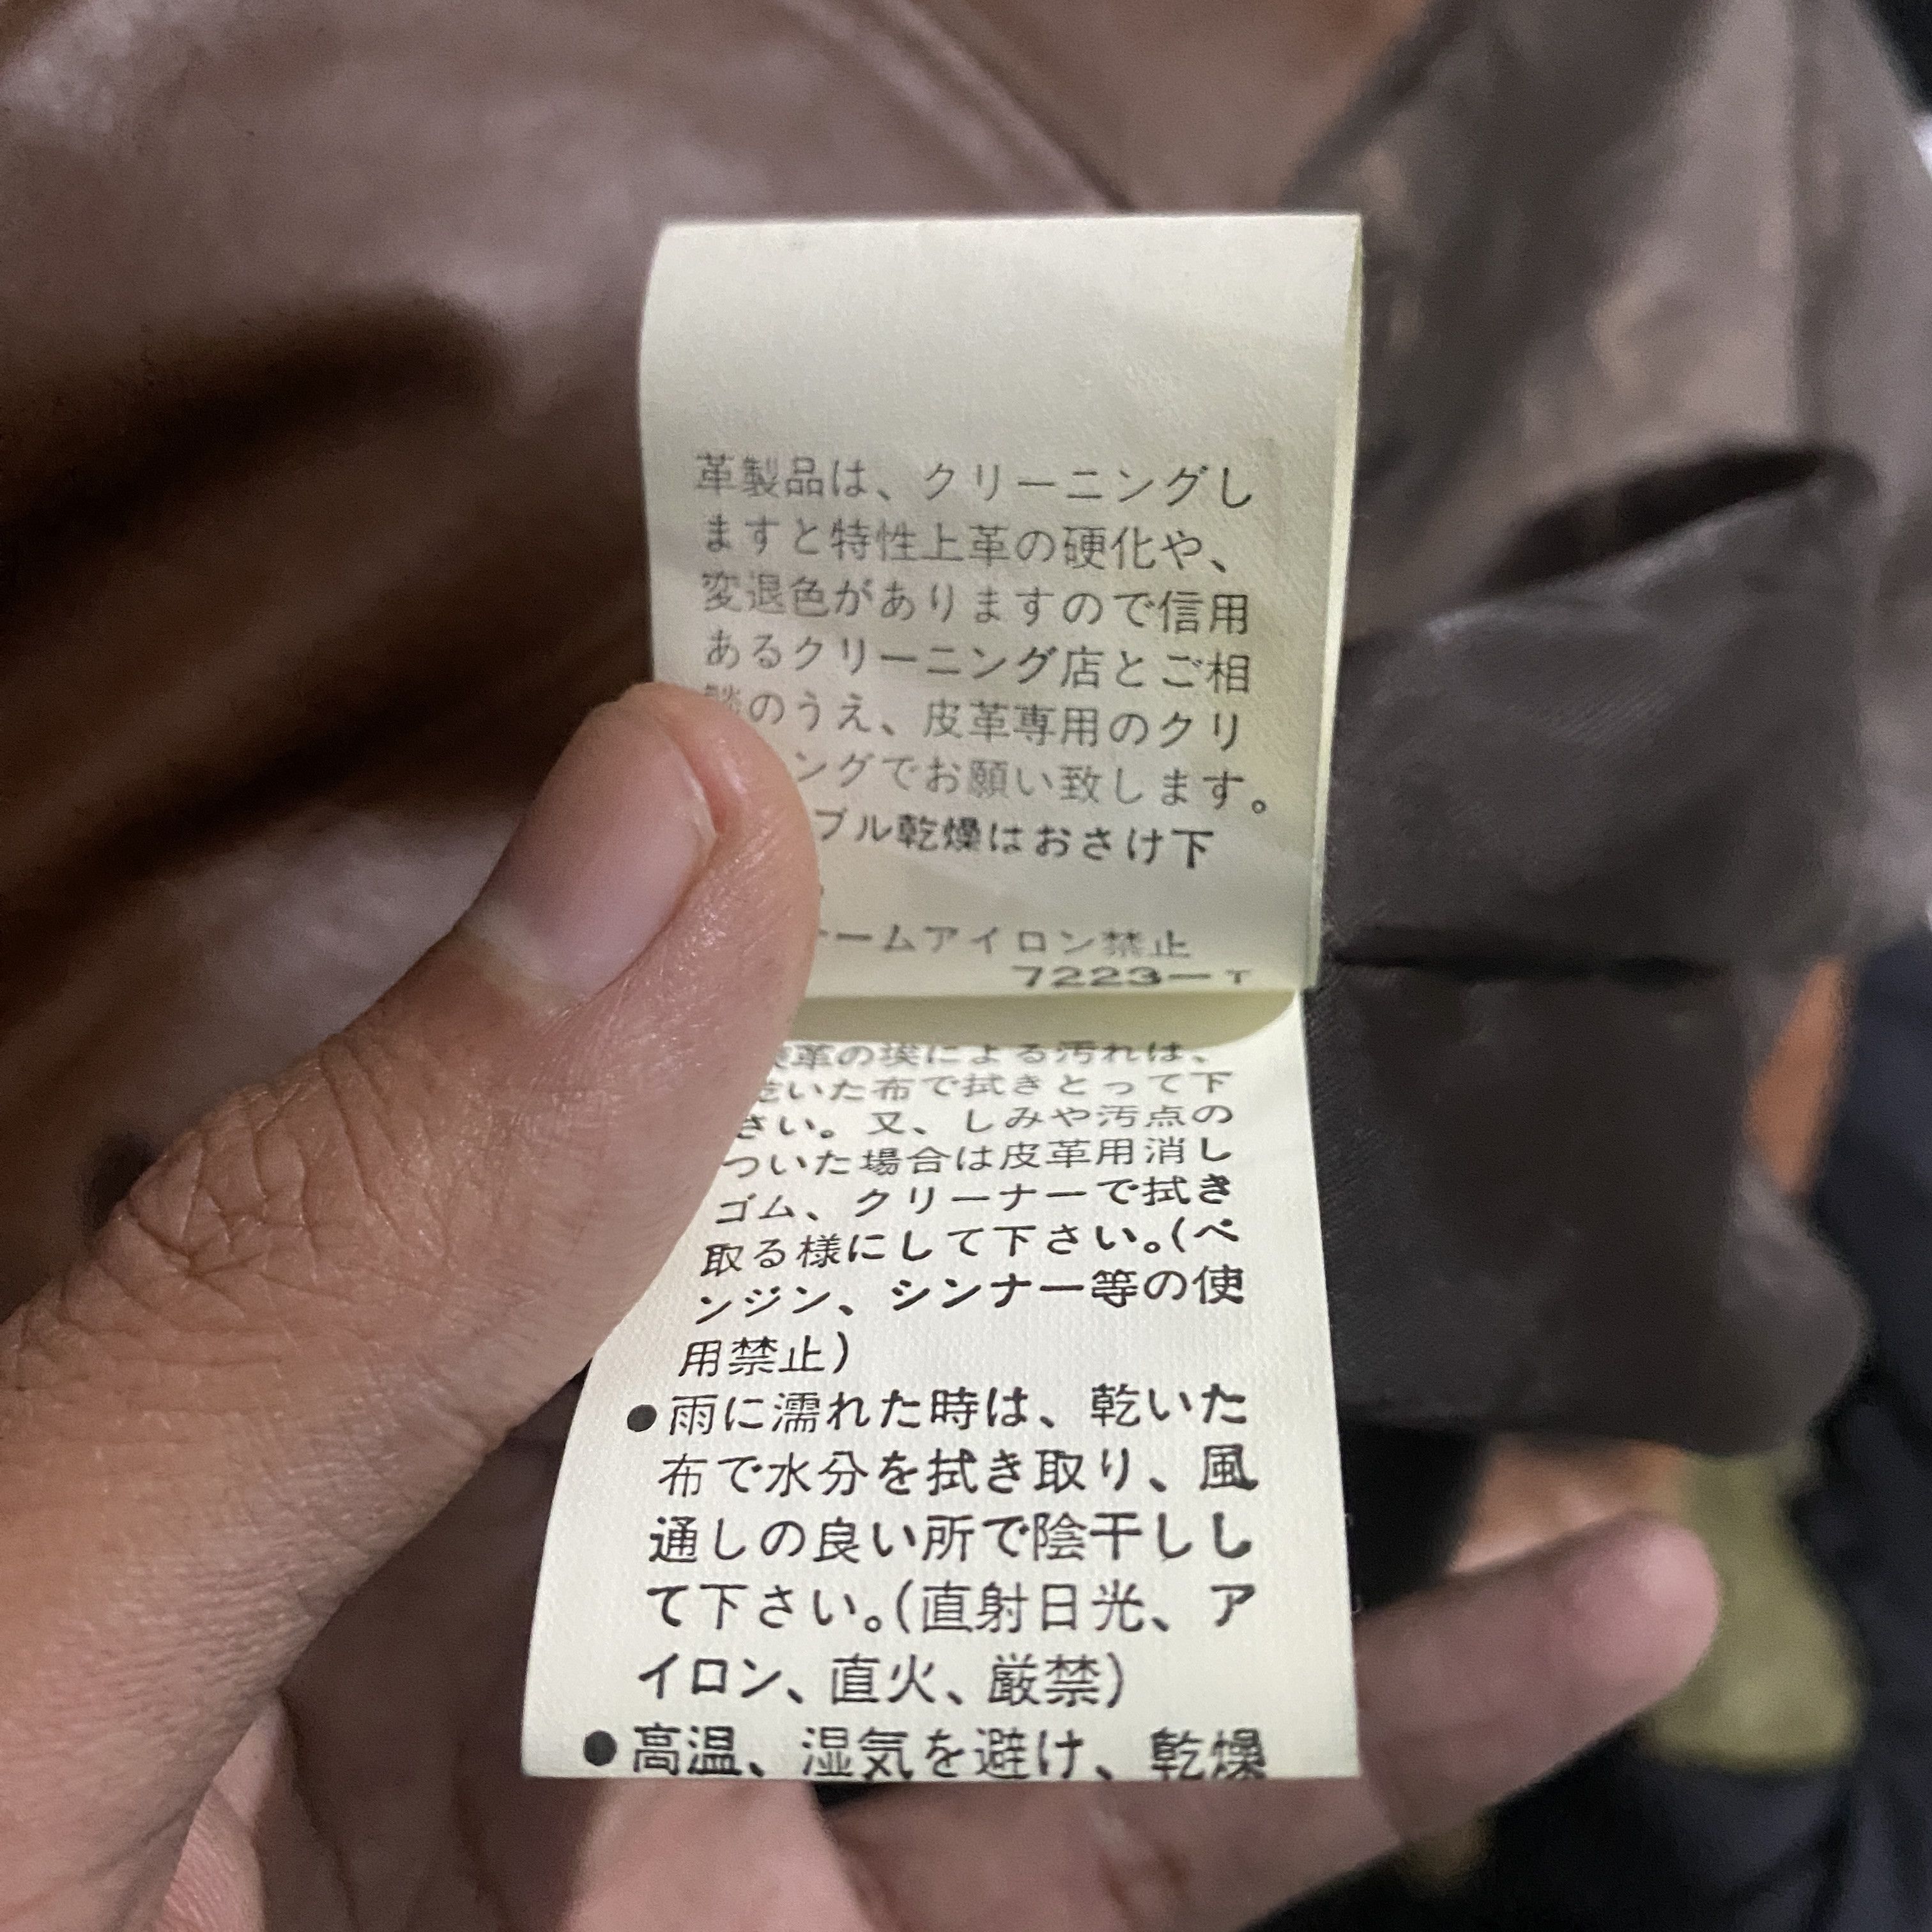 革製品は、クリーニングし
ますと特性上革の硬化や、
変退色がありますので信用
あるクリーニング店とご相
談のうえ、皮革専用のクリ
ングでお願い致します。
ブル乾燥はおさけ下
ームアイロン禁止
7223-T
革の埃による汚れは、
乾いた布で拭きとって下
さい。又、しみや汚点の
ついた場合は皮革用消し
ゴム、クリーナーで拭き
取る様にして下さい。(ベ
ンジン、シンナー等の使
用禁止)
●雨に濡れた時は、乾いた
布で水分を拭き取り、風
通しの良い所で陰干しし
て下さい。(直射日光、ア
イロン、直火、厳禁)
●高温、湿気を避け、乾燥